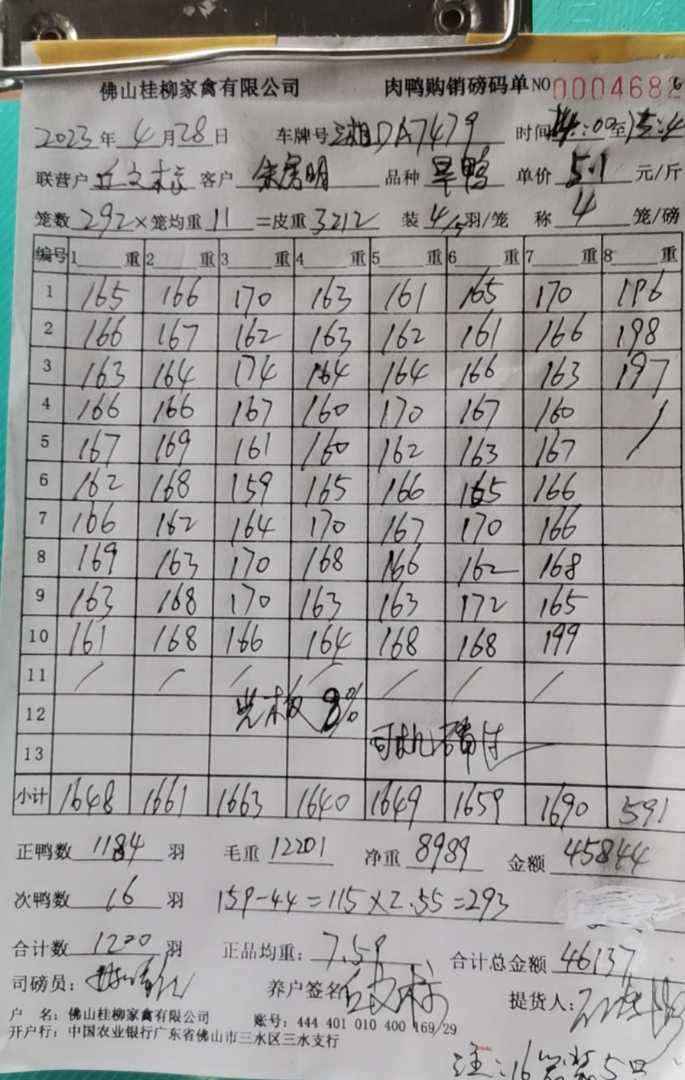 佛山桂柳家禽有限公司 肉鸭购销磅码单 NO 0004682
2023年 4月 28日 车牌号 湘DA7479 时间 14:00至
联营户 客户 品种 旱鸭 单价 5.1 元/斤
笼数 292 ×笼均重 11 =皮重 3212 装 4/5 羽/笼 称 4 笼/磅
编号 1 重 2 重 3 重 4 重 5 重 6 重 7 重 8 重
1 165 166 170 163 161 165 170 196
2 166 167 162 163 162 161 166 198
3 163 164 174 164 164 166 163 197
4 166 166 167 160 170 167 160 /
5 167 169 161 160 162 163 167
6 162 168 159 165 166 165 166
7 166 162 164 170 167 170 166
8 169 163 170 168 166 162 168
9 163 168 170 163 163 172 165
10 161 168 166 164 168 168 199
11 / / / / / / /
12 光板 8%
13
小计 1648 1661 1663 1640 1649 1659 1690 591
正鸭数 1184 羽 毛重 12201 净重 8989 金额 45844
次鸭数 16 羽 159-44=115×2.55=293
合计数 1200 羽 正品均重: 7.59 合计总金额 46137
司磅员: 养户签名 提货人:
户 名: 佛山桂柳家禽有限公司 账号: 444 401 010 400 169 29
开户行: 中国农业银行广东省佛山市三水区三水支行
注:16笼装5只